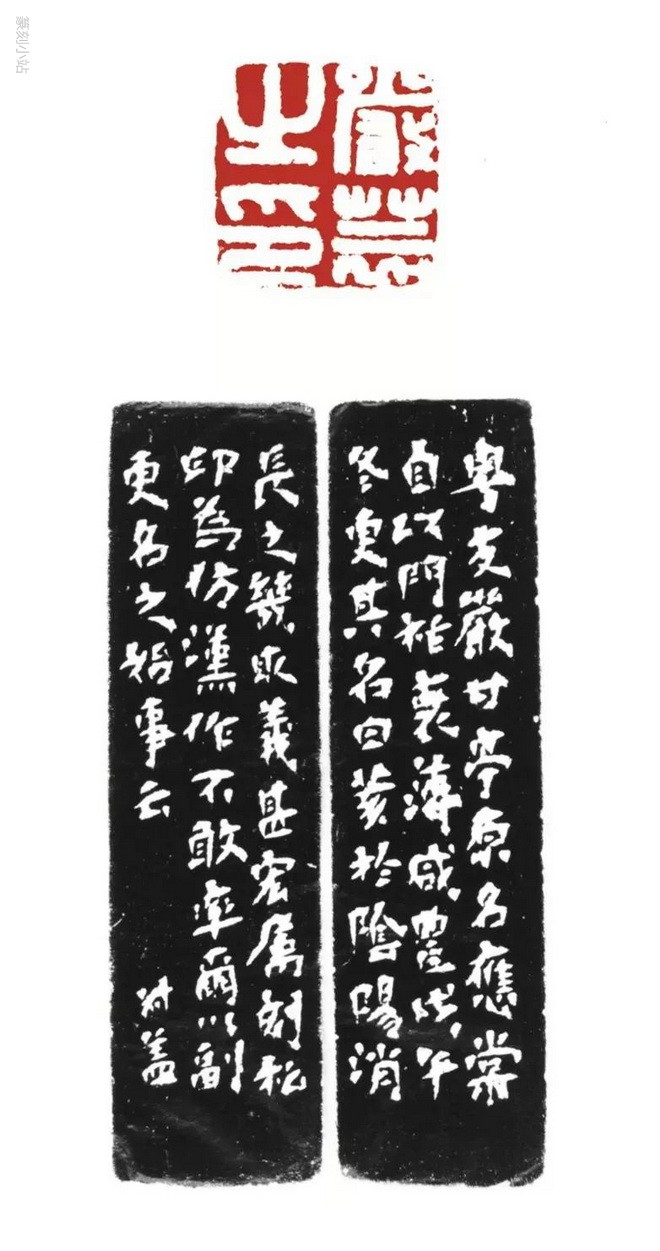 篆刻小站
嚴荄
之印
粵友嚴甘亭原名應棠
自以門祚衰薄咸豐戊午
冬更其名曰荄於陰陽消
長之幾取義甚宏屬刻私
印為仿漢作不敢率爾以副
更名之始事云
叔蓋